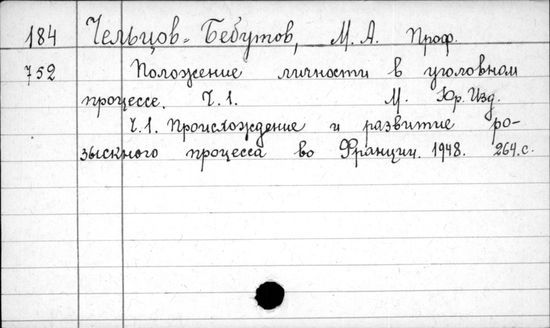 184 Чельцов-Бебутов, М. А. Проф.
752 Положение личности в уголовном
процессе. Ч. 1. М. Юр. Изд.
Ч. 1. Происхождение и развитие ро-
зыскного процесса во Франции. 1948. 264 с.